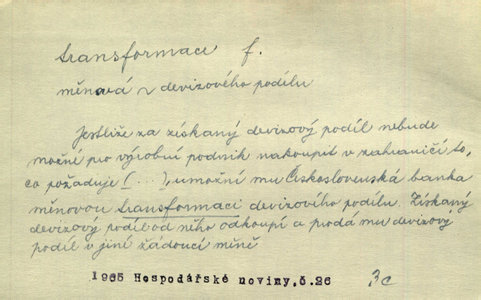 transformace f.
měnová ~ devizového podílu
Jestliže za získaný devizový podíl nebude
možné pro výrobní podnik nakoupit v zahraničí to,
co požaduje (...), umožní mu Československá banka
měnovou transformaci devizového podílu. Získaný
devizový podíl od něho odkoupí a prodá mu devizový
podíl v jiné žádoucí měně
1965 Hospodářské noviny, č. 26
3c